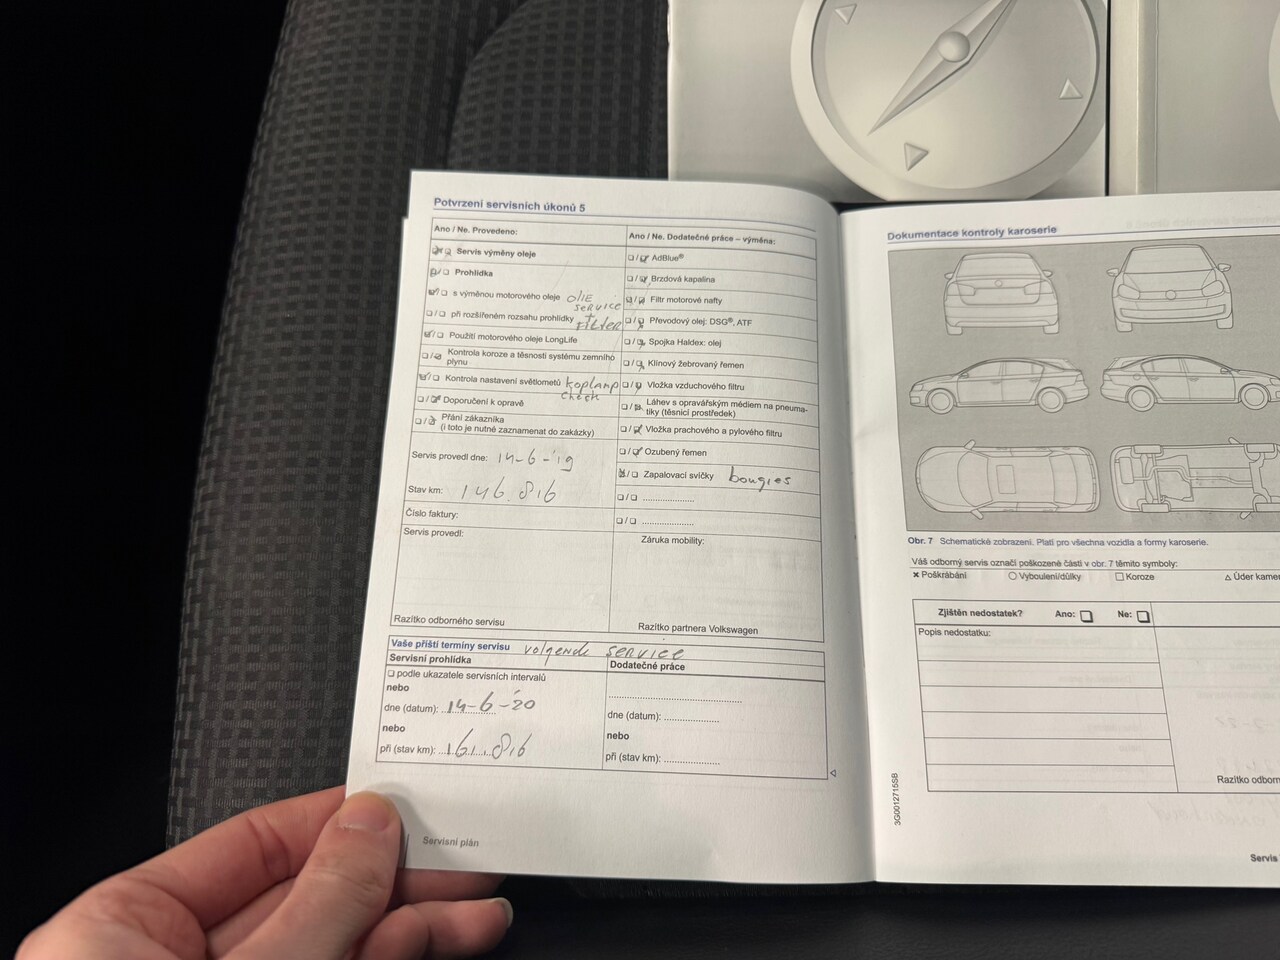 Potvrzení servisních úkonů 5
Ano / Ne. Provedeno:
Servis výměny oleje
Prohlídka
s výměnou motorového oleje olie service + Filter
při rozšířeném rozsahu prohlídky
Použití motorového oleje LongLife
Kontrola koroze a těsnosti systému zemního
plynu
Kontrola nastavení světlometů koplamp check
Doporučení k opravě
Přání zákazníka
(i toto je nutné zaznamenat do zakázky)
Servis provedl dne: 14-6-'19
Stav km: 146.816
Číslo faktury:
Servis provedl:
Razítko odborného servisu
Ano / Ne. Dodatečné práce – výměna:
AdBlue®
Brzdová kapalina
Filtr motorové nafty
Převodový olej: DSG®, ATF
Spojka Haldex: olej
Klínový žebrovaný řemen
Vložka vzduchového filtru
Láhev s opravářským médiem na pneuma-
tiky (těsnicí prostředek)
Vložka prachového a pylového filtru
Ozubený řemen
Zapalovací svíčky bougies
Záruka mobility:
Razítko partnera Volkswagen
Vaše příští termíny servisu volgende service
Servisní prohlídka
podle ukazatele servisních intervalů
nebo
dne (datum): 14-6-'20
nebo
při (stav km): 161.816
Dodatečné práce
dne (datum):
nebo
při (stav km):
Servisní plán
Dokumentace kontroly karoserie
Obr. 7 Schematické zobrazení. Platí pro všechna vozidla a formy karoserie.
Váš odborný servis označí poškozené části v obr. 7 těmito symboly:
× Poškrábání ○ Vyboulení/důlky □ Koroze △ Úder kame
Zjištěn nedostatek? Ano: Ne:
Popis nedostatku:
Razítko odborn
3G0012715SB
Servis